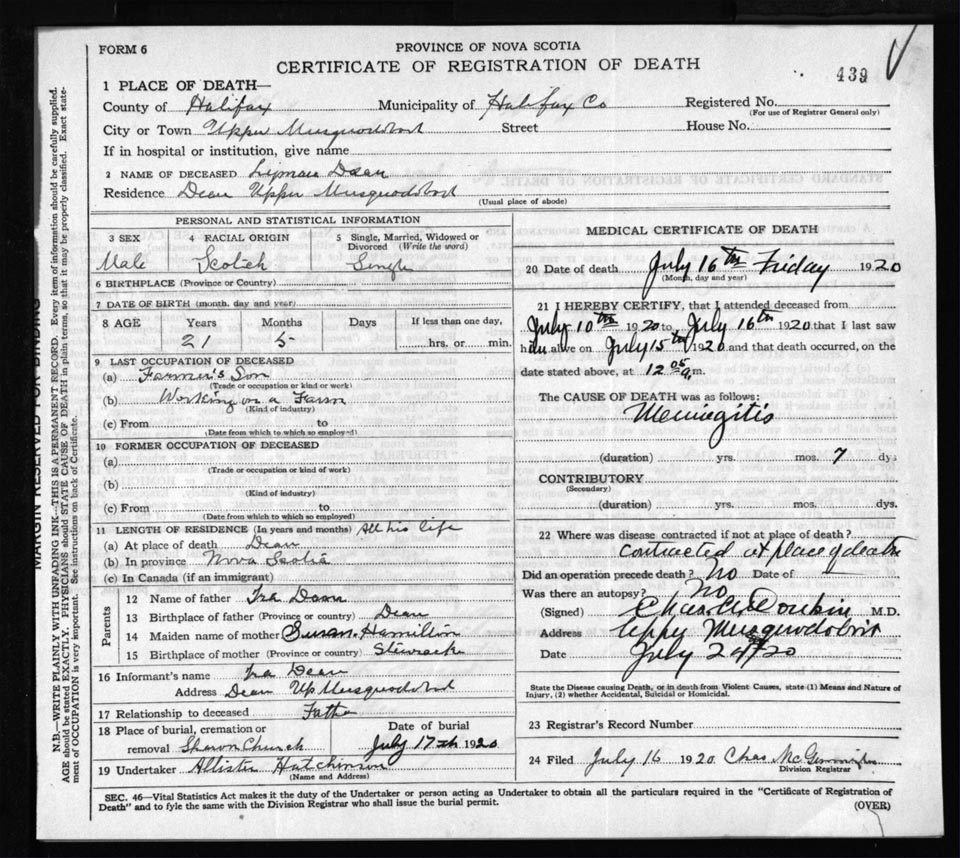 FORM 6
PROVINCE OF NOVA SCOTIA
CERTIFICATE OF REGISTRATION OF DEATH
439
1 PLACE OF DEATH—
County of Halifax Municipality of Halifax Co Registered No.
(For use of Registrar General only)
City or Town Upper Musquodoboit Street House No.
If in hospital or institution, give name
2 NAME OF DECEASED Lyman Dean
Residence Dean Upper Musquodoboit
(Usual place of abode)
PERSONAL AND STATISTICAL INFORMATION
3 SEX 4 RACIAL ORIGIN 5 Single, Married, Widowed or Divorced (Write the word)
Male Scotch Single
6 BIRTHPLACE (Province or Country)
7 DATE OF BIRTH (month, day and year)
8 AGE Years Months Days If less than one day,
21 5 hrs. or min.
9 LAST OCCUPATION OF DECEASED
(a) Farmer's Son
(Trade or occupation or kind or work)
(b) Working on a Farm
(Kind of industry)
(c) From to
(Date from which to which so employed)
10 FORMER OCCUPATION OF DECEASED
(a)
(Trade or occupation or kind of work)
(b)
(Kind of industry)
(c) From to
(Date from which to which so employed)
11 LENGTH OF RESIDENCE (In years and months) All his life
(a) At place of death Dean
(b) In province Nova Scotia
(c) In Canada (if an immigrant)
Parents
12 Name of father Ira Dean
13 Birthplace of father (Province or country) Dean
14 Maiden name of mother Susan Hamilton
15 Birthplace of mother (Province or country)
16 Informant's name Ira Dean
Address Dean Up Musquodoboit
17 Relationship to deceased Father
18 Place of burial, cremation or Date of burial
removal Church July 17th 1920
19 Undertaker Allister Hutchinson
(Name and Address)
MEDICAL CERTIFICATE OF DEATH
20 Date of death July 16th Friday 1920
(Month, day and year)
21 I HEREBY CERTIFY, that I attended deceased from
July 10th 1920 to July 16th 1920 that I last saw
him alive on July 15th 1920 and that death occurred, on the
date stated above, at 12 05 a.m.
The CAUSE OF DEATH was as follows:
Meningitis
(duration) yrs. mos. 7 dys
CONTRIBUTORY
(Secondary)
(duration) yrs. mos. dys.
22 Where was disease contracted if not at place of death?
Contracted at place of death
Did an operation precede death? No Date of
Was there an autopsy? No
(Signed) M.D.
Address Upper Musquodoboit
Date July 20
State the Disease causing Death, or in death from Violent Causes, state (1) Means and Nature of
Injury, (2) whether Accidental, Suicidal or Homicidal.
23 Registrar's Record Number
24 Filed July 16 1920 Chas
Division Registrar
SEC. 46—Vital Statistics Act makes it the duty of the Undertaker or person acting as Undertaker to obtain all the particulars required in the "Certificate of Registration of
Death" and to fyle the same with the Division Registrar who shall issue the burial permit.
(OVER)
MARGIN RESERVED FOR BINDING
N.B.—WRITE PLAINLY WITH UNFADING INK—THIS IS A PERMANENT RECORD. Every item of information should be carefully supplied.
AGE should be stated EXACTLY. PHYSICIANS should STATE CAUSE OF DEATH in plain terms, so that it may be properly classified. Exact state-
ment of OCCUPATION is very important. See instructions on back of Certificate.